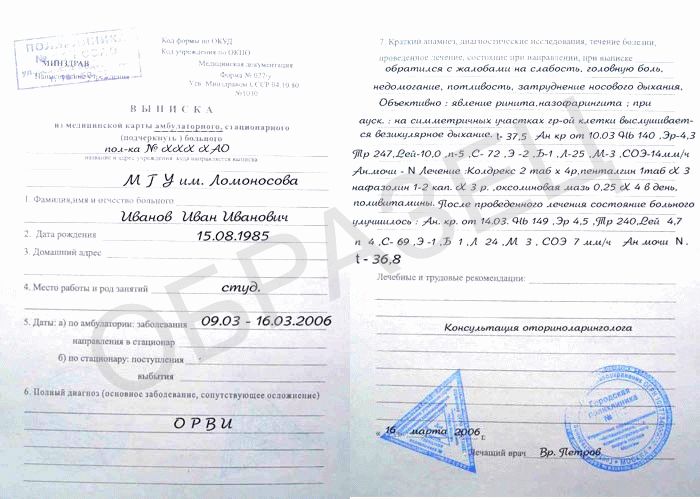 ПОЛИКЛИНИКА
№
МИНЗДРАВ
Код формы по ОКУД
Код учреждения по ОКПО
Медицинская документация
Форма № 027-у
Утв. Минздравом СССР 04.10.80
№1030
ВЫПИСКА
из медицинской карты амбулаторного, стационарного
(подчеркнуть) больного
пол-ка № ххх хАО
название и адрес учреждения, куда направляется выписка
МГУ им. Ломоносова
1. Фамилия, имя и отчество больного
Иванов Иван Иванович
2. Дата рождения 15.08.1985
3. Домашний адрес
4. Место работы и род занятий студ.
5. Даты: а) по амбулатории: заболевания 09.03 - 16.03.2006
направления в стационар
б) по стационару: поступления
выбытия
6. Полный диагноз (основное заболевание, сопутствующее осложнение)
ОРВИ
7. Краткий анамнез, диагностические исследования, течение болезни,
проведенное лечение, состояние при направлении, при выписке
обратился с жалобами на слабость, головную боль,
недомогание, потливость, затруднение носового дыхания,
Объективно : явление ринита,назофарингита ; при
ауск. : на симметричных участках гр-ой клетки выслушивает-
ся везикулярное дыхание. t- 37,5 Ан кр от 10.03 Hb 140 ,Эр-4,3
Тр 247,Лей-10,0 ,п-5 ,С- 72 ,Э -2 ,Б-1 ,Л-25 ,М-3 ,СОЭ-14мм/ч
Ан.мочи - N Лечение :Колдрекс 2 таб х 4р,пенталгин 1таб х 3
нафазолин 1-2 кап. х 3 р. ,оксолиновая мазь 0,25 х 4 в день,
поливитамины. После проведенного лечения состояние больного
улучшилось : Ан. кр. от 14.03. Hb 149 ,Эр 4,5 ,Тр 240,Лей 4,7
п 4 ,С- 69 ,Э -1 ,Б 1 ,Л 24 ,М 3 , СОЭ 7 мм/ч Ан мочи N .
t - 36,8
Лечебные и трудовые рекомендации:
Консультация оториноларинголога
Городская
поликлиника
№
« 16 марта 2006 г.
Лечащий врач Вр. Петров
ОБРАЗЕЦ